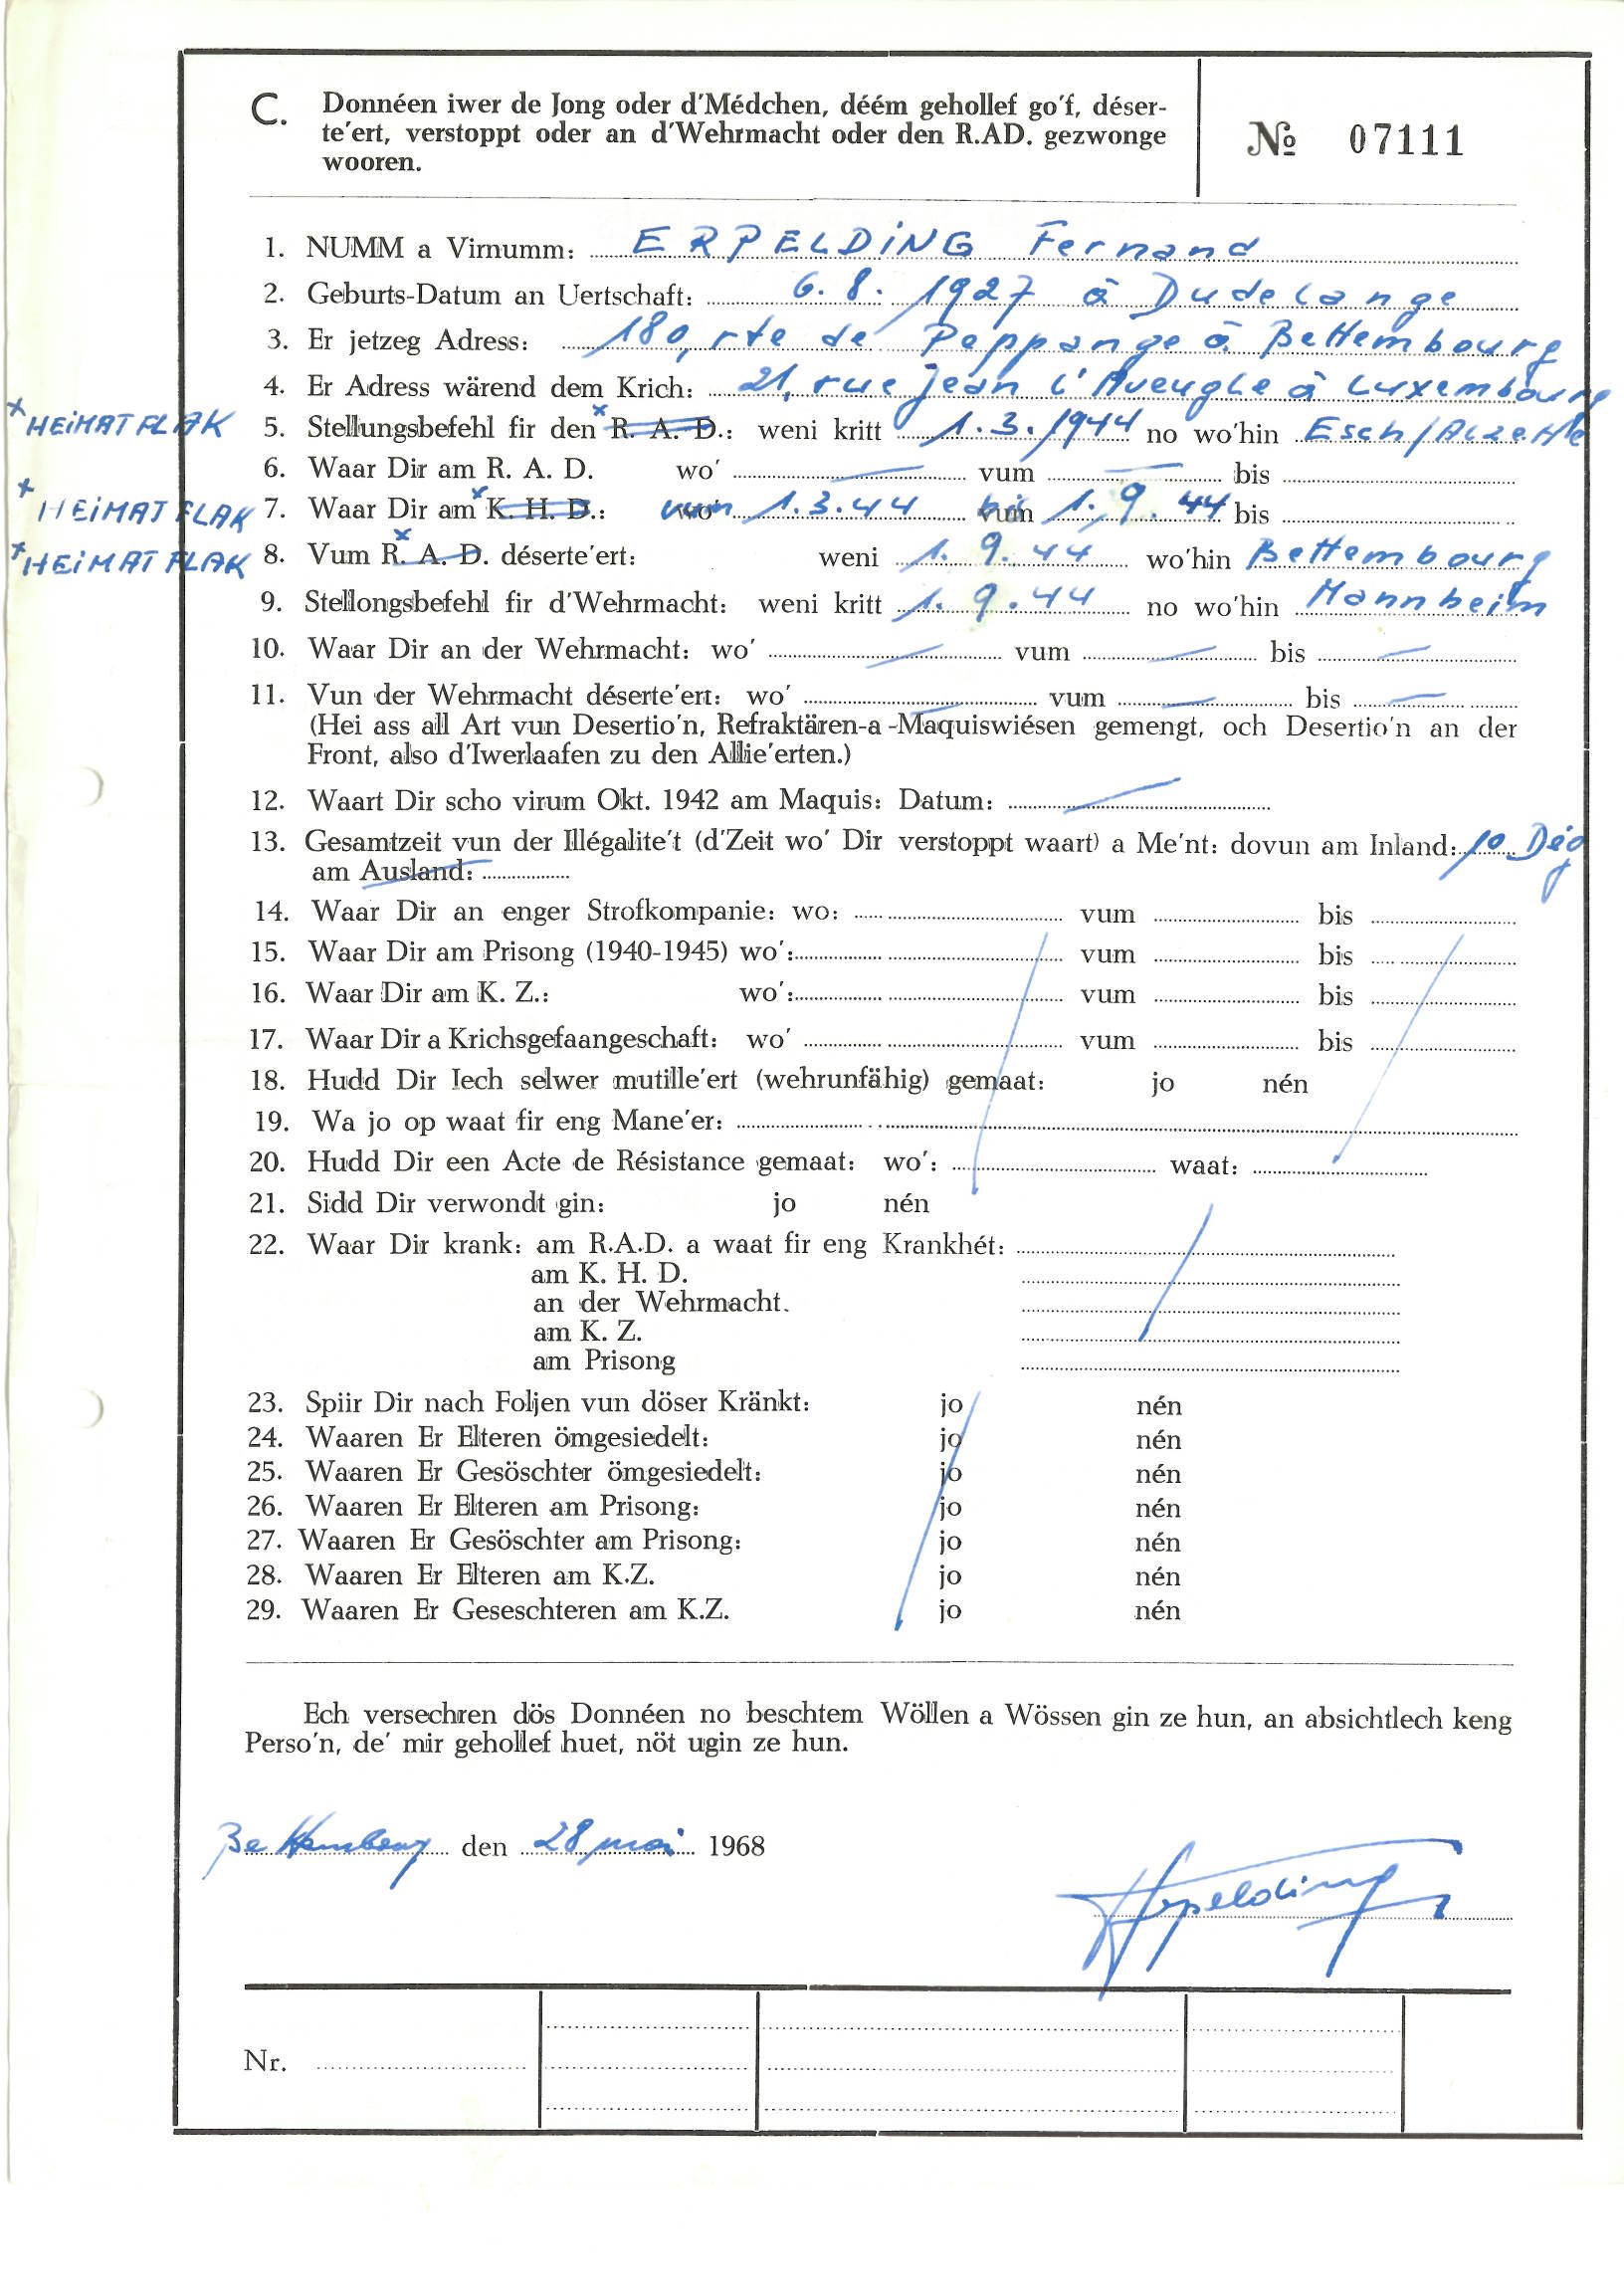 C. Donnéen iwer de Jong oder d'Médchen, déém gehollef go'f, déser-
te'ert, verstoppt oder an d'Wehrmacht oder den R.AD. gezwonge
wooren.
№ 07111
1. NUMM a Virnumm: ERPELDING Fernand
2. Geburts-Datum an Uertschaft: 6.8.1927 à Dudelange
3. Er jetzeg Adress: 180, rte de Peppange à Bettembourg
4. Er Adress wärend dem Krich: 21, rue Jean l'Aveugle à Luxembourg
x HEIMATFLAK 5. Stellungsbefehl fir den x R. A. D.: weni kritt 1.3.1944 no wo'hin Esch/Alzette
6. Waar Dir am R. A. D. wo' — vum — bis
x HEIMAT FLAK 7. Waar Dir am x K. H. D.: wo' vum 1.3.44 vum bis 1.9.44 bis
x HEIMAT FLAK 8. Vum x R. A. D. déserte'ert: weni 1.9.44 wo'hin Bettembourg
9. Stellongsbefehl fir d'Wehrmacht: weni kritt 1.9.44 no wo'hin Mannheim
10. Waar Dir an der Wehrmacht: wo' — vum — bis —
11. Vun der Wehrmacht déserte'ert: wo' — vum — bis —
(Hei ass all Art vun Desertio'n, Refraktären-a-Maquiswiésen gemengt, och Desertio'n an der
Front, also d'Iwerlaafen zu den Allie'erten.)
12. Waart Dir scho virum Okt. 1942 am Maquis: Datum: —
13. Gesamtzeit vun der Illégalite't (d'Zeit wo' Dir verstoppt waart) a Me'nt: dovun am Inland: 10 Dég
am Ausland:
14. Waar Dir an enger Strofkompanie: wo: vum bis
15. Waar Dir am Prisong (1940-1945) wo': vum bis
16. Waar Dir am K. Z.: wo': vum bis
17. Waar Dir a Krichsgefaangeschaft: wo' vum bis
18. Hudd Dir Iech selwer mutille'ert (wehrunfähig) gemaat: jo nén
19. Wa jo op waat fir eng Mane'er:
20. Hudd Dir een Acte de Résistance gemaat: wo': waat:
21. Sidd Dir verwondt gin: jo nén
22. Waar Dir krank: am R.A.D. a waat fir eng Krankhét:
am K. H. D.
an der Wehrmacht.
am K. Z.
am Prisong
23. Spiir Dir nach Foljen vun döser Kränkt: jo nén
24. Waaren Er Elteren ömgesiedelt: jo nén
25. Waaren Er Gesöschter ömgesiedelt: jo nén
26. Waaren Er Elteren am Prisong: jo nén
27. Waaren Er Gesöschter am Prisong: jo nén
28. Waaren Er Elteren am K.Z. jo nén
29. Waaren Er Geseschteren am K.Z. jo nén
Ech versechren dös Donnéen no beschtem Wöllen a Wössen gin ze hun, an absichtlech keng
Perso'n, de' mir gehollef huet, nöt ugin ze hun.
Bettembourg den 28 mai 1968
Erpelding
Nr.